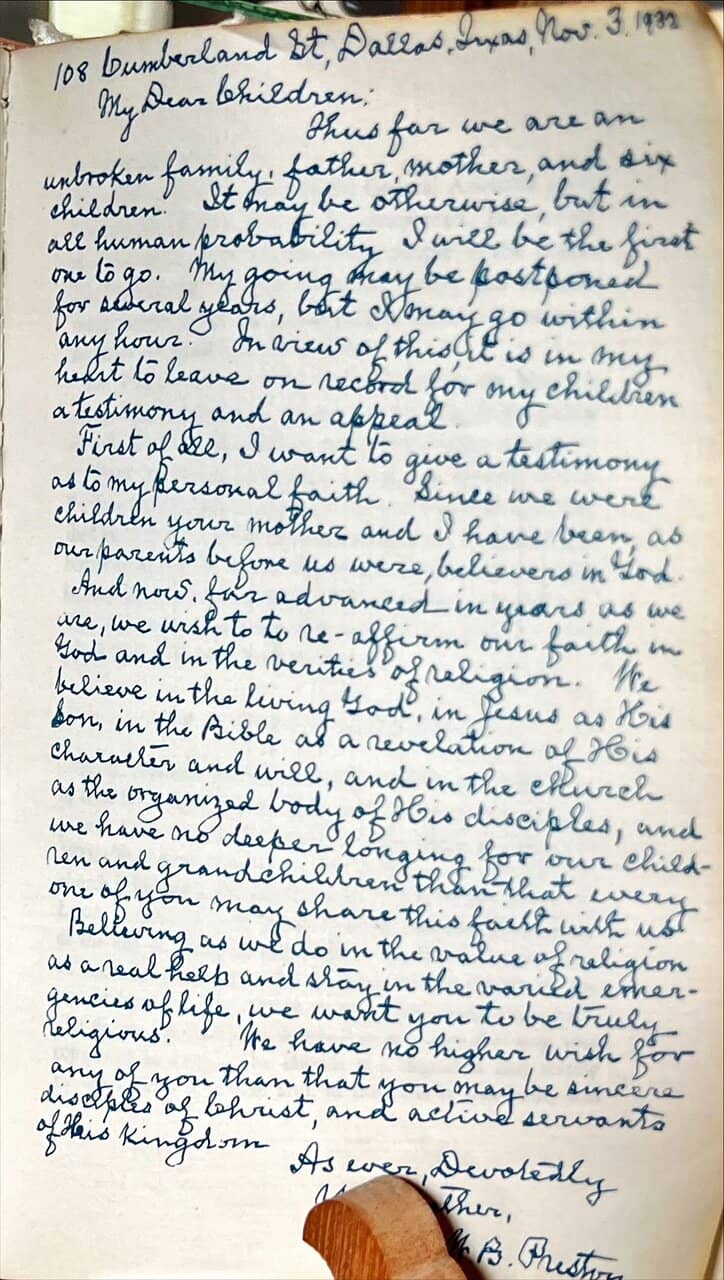 108 Cumberland St, Dallas, Texas, Nov. 3, 1932
My Dear Children:
Thus far we are an
unbroken family, father, mother, and six
children. It may be otherwise, but in
all human probability I will be the first
one to go. My going may be postponed
for several years, but I may go within
any hour. In view of this, it is in my
heart to leave on record for my children
a testimony and an appeal.
First of all, I want to give a testimony
as to my personal faith. Since we were
children your mother and I have been, as
our parents before us were, believers in God.
And now, far advanced in years as we
are, we wish to to re-affirm our faith in
God and in the verities of religion. We
believe in the living God, in Jesus as His
Son, in the Bible as a revelation of His
character and will, and in the church
as the organized body of His disciples, and
we have no deeper longing for our child-
ren and grandchildren than that every
one of you may share this faith with us
Believing as we do in the value of religion
as a real help and stay in the varied emer-
gencies of life, we want you to be truly
religious. We have no higher wish for
any of you than that you may be sincere
disciples of Christ, and active servants
of His Kingdom
As ever, Devotedly
ther,
B. Preston